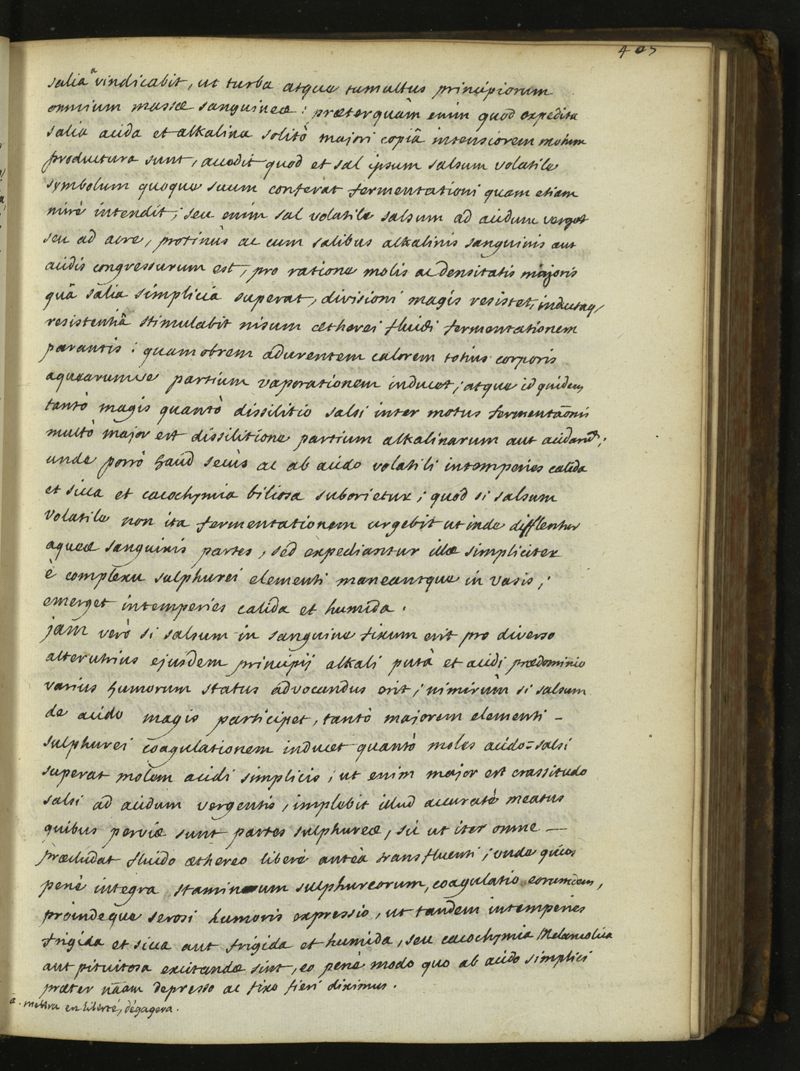 405
salia a vindicabit, ut turba atque tumultus principiorum
omnium massæ sanguineæ : præterquàm enim quod expedita
salia acida et alkalina solitò majori copiâ intensiorem motum
productura sunt, accedit quod et sal ipsum salsum volatile
symbolum quoque suum conferat fermentationi quam etiam
mirè intendit ; seu enim sal volatile salsum ad acidum vergat
seu ad acre, protinùs ac cum salibus alkalinis sanguinis aut
acidis congressurum est, pro ratione molis ac densitatis majoris
quâ salia simplicia superat, divisioni magis resistet, inductaq/
resistentiâ stimulabit nisum ætherei fluidi fermentationem
parantis : quamobrem adurentem calorem totius corporis
aquearumve partium vaporationem inducet ; atque id quidem
tantò magis quantò dissilitio salsi inter motus fermentãonis
multò major est dissilitione partium alkalinarum aut acidarũ ;
unde porrò haud secùs ac ab acido volatili intemperies calida
et sicca et cacochymia biliosa suborietur ; quòd si salsum
volatile non ita fermentationem urgebit ut inde difflentur
aqueæ sanguinis partes, sed expediantur illæ simpliciter
è complexu sulphurei elementi maneantque in vasis ;
emerget intemperies calida et humida .
jam verò si salsum in sanguine fixum erit pro diverso
alterutrius ejusdem principij alkali putà et acidi prædominio
varius humorum status advocandus erit ; nimirùm si salsum
de acido magis participet, tantò majorem elementi –
sulphurei coagulationem inducet quantò moles acido-salsi
superat molem acidi simplicis ; ut enim major est crassitudo
salsi ad acidum vergentis, implebit illud accuratè meatus
quibus perviæ sunt partes sulphureæ, sic ut iter omne —
præcludat fluido æthereo liberè anteà transfluenti ; unde quies
penè integra staminum sulphureorum, coagulatio eorumdem,
proindeque serosi humoris expressio, ut tandem intemperies
frigida et sicca aut frigida et humida, seu cacochymia Melancolica
aut pituitosa excitandæ sint, eo penè modo quo ab acido simplici
præter nãam depresso ac fixo fieri diximus .
a . mettra en liberté, dégagera .